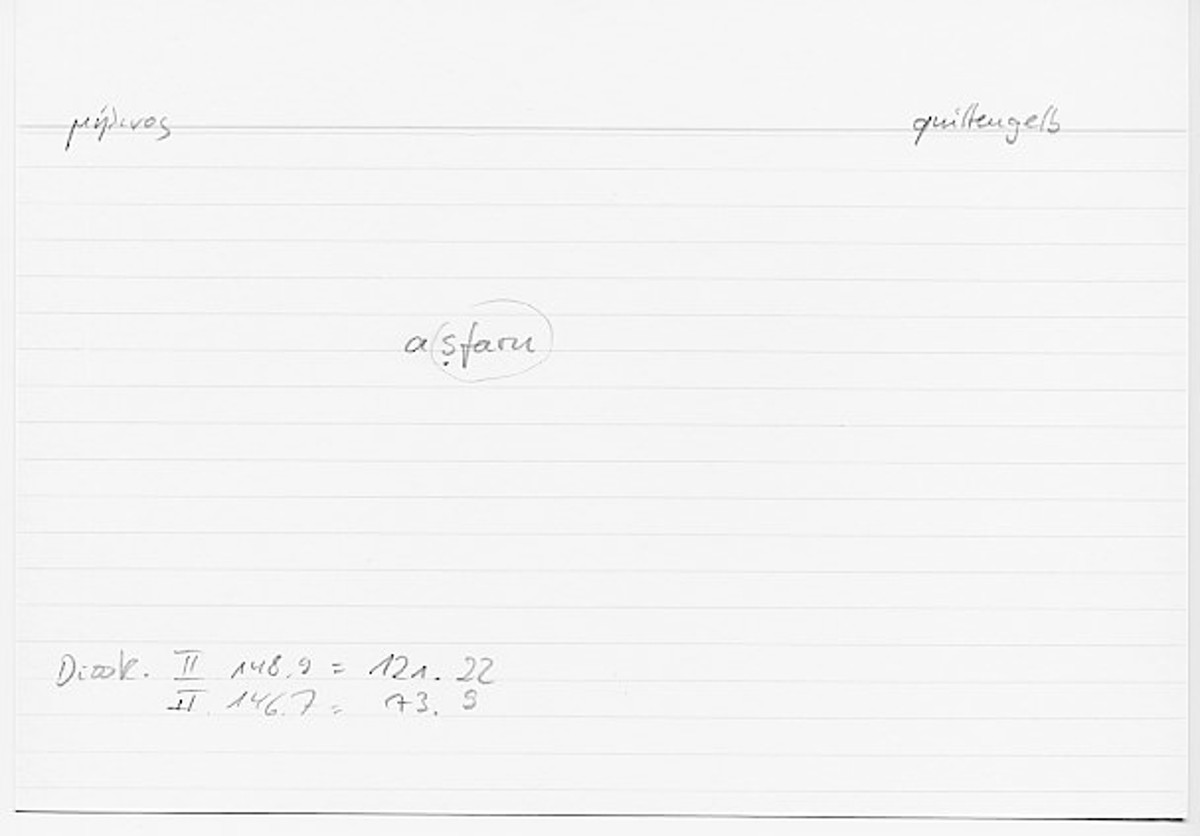 μήλινος quittengelb
aṣfaru
Diosk. II 148.9 = 121. 22
II. 146.7 = 73. 9